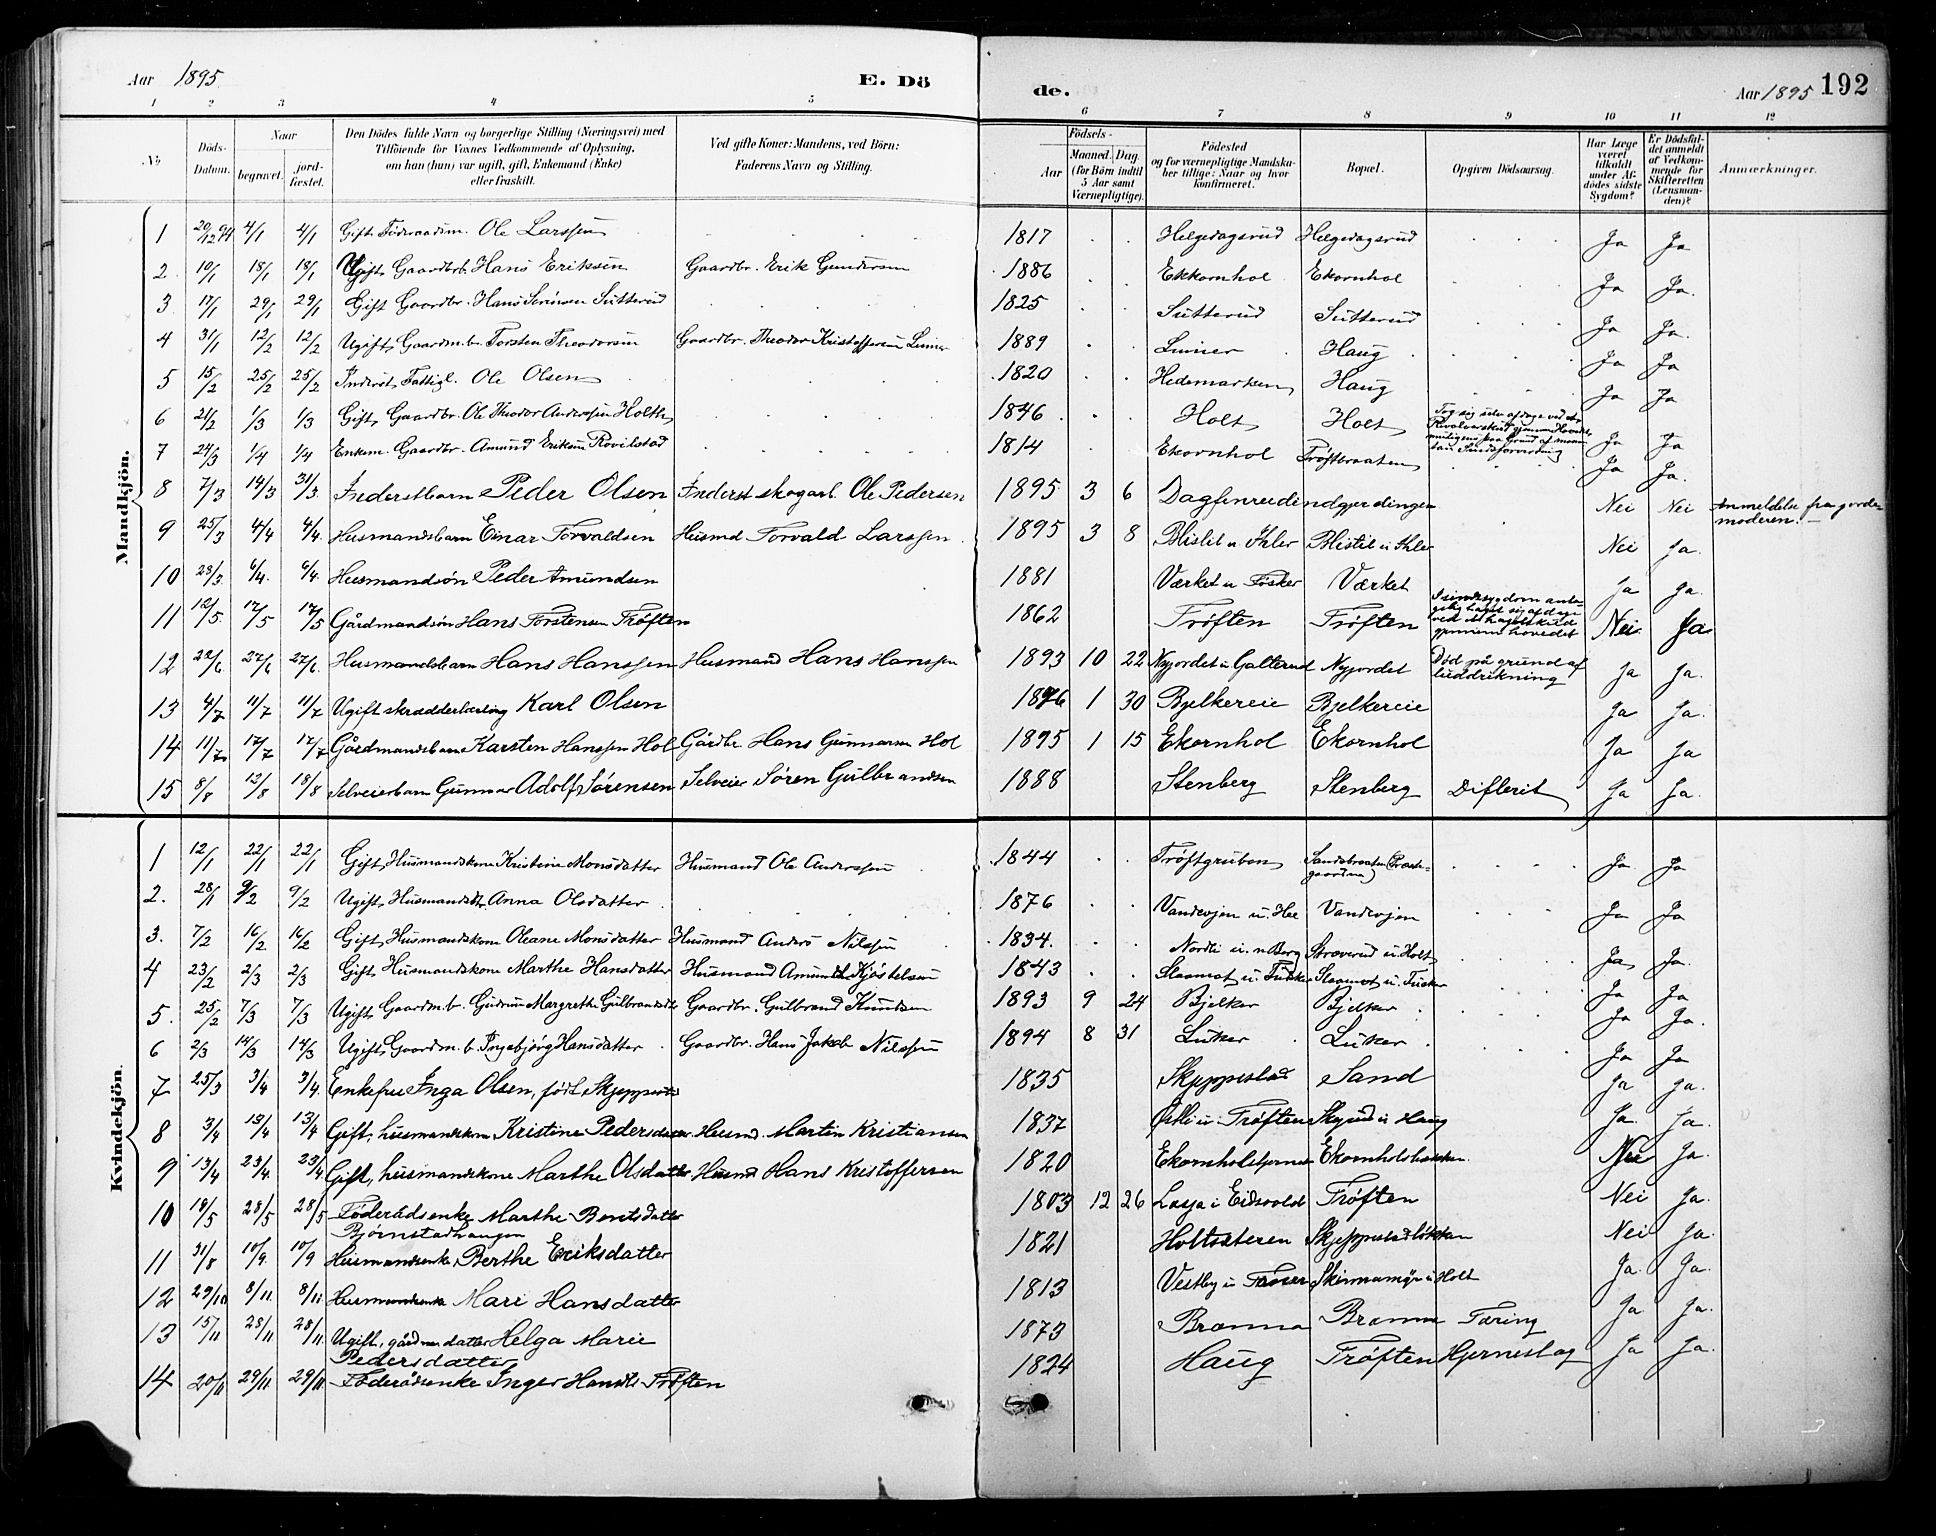 Aar 1895. E. Dö de. Aar 1895 192
1 2 3 4 5 6 7 8 9 10 11 12
No
Döds-Datum.
Naar begravet. jordfæstet.
Den Dödes fulde Navn og borgerlige Stilling (Næringsvei) med Tilföiende for Voxnes Vedkommende af Oplysning, om han (hun) var ugift, gift, Enkemand (Enke) eller fraskilt.
Ved gifte Koner: Mandens, ved Börn: Faderens Navn og Stilling.
Födsels-
Aar
Maaned. Dag. (for Börn indtil 5 Aar samt Værnepligtige).
Födested og for værnepligtige Mandskaber tillige: Naar og hvor konfirmeret.
Bopæl.
Opgiven Dödsaarsag.
Har Læge været tilkaldt under Afdödes sidste Sygdom?
Er Dödsfaldet anmeldt af Vedkommende for Skifteretten (Lensmanden)?
Anmærkninger.
Mandkjön.
1 20/12 94 4/1 4/1 Gift Föderaadsm. Ole Larssen 1817 Helgedagsrud Helgedagsrud Ja Ja
2 10/1 18/1 18/1 Ugift Gaardbrb Hans Eriksen Gaardbr. Erik Gundersen 1886 Ekkornhol Ekornhol Ja Ja.
3 17/1 29/1 29/1 Gift Gaardbr. Hans Sörensen Sutterud 1825 Sutterud Sutterud Ja Ja.
4 31/1 12/2 12/2 Ugift Gaardm.b. Torsten Theodorsen Gaardbr. Theodor Kristoffersen 1889 Haug Ja Ja
5 15/2 25/2 25/2 Inderst, Fattigl. Ole Olsen 1820 Hedemarken Haug Ja Ja
6 21/2 1/3 1/3 Gift, Gaardbr. Ole Theodor Anderssen Holth 1846 Holt Holt Tog sig selv afdage ved et Revolverskud gjennem Hovedet Ja Ja
7 24/3 1/4 1/4 Enkem. Gaardbr. Amund Eriksen 1814 Ekornhol Tröftbraaten Ja Ja.
8 7/3 14/3 31/3 Inderstbarn Peder Olsen Inderst skogarb. Ole Pedersen 1895 3 6 Nei Nei Anmeldelse fra gjordemoderen.
9 25/3 4/4 4/4 Husmandsbarn Einar Torvaldsen Husmd Torvald Larssen 1895 3 8 Nei Ja.
10 28/3 6/4 6/4 Husmandsön Peder Amundsen 1881 Værket Værket Ja Ja.
11 12/5 17/5 17/5 Gårdmandsön Hans Torstensen Tröften 1862 Tröften Tröften I sindssygdom gjennem hovedet Nei Ja
12 22/6 27/6 27/6 Husmandsbarn Hans Hanssen Husmand Hans Hanssen 1893 10 22 Nyjordet u Galterud Nyjordet Död på grund af luddrikning Ja Ja.
13 4/7 11/7 11/7 Ugift skrædderlærling Karl Olsen 1876 1 30 Bjelkereie Bjelkereie Ja Ja.
14 11/7 17/7 17/7 Gårdmandsbarn Karsten Hanssen Hol Gårdbr Hans Gunnarsen Hol 1895 1 15 Ekornhol Ekornhol Ja Ja
15 8/8 12/8 18/8 Selveierbarn Gunnar Adolf Sörensen Selveier Sören Gulbrandsen 1888 Stenberg Stenberg Difterit Ja Ja.
Kvindekjön.
1 12/1 22/1 22/1 Gift, Husmandskone Kristine Monsdatter Husmand Ole Anderssen 1844 Tröftgruben Sandsbraaten Ja Ja
2. 28/1 9/2 9/2 Ugift, Husmandsdtr. Anna Olsdatter 1876 Vandvejen Vandvejen Ja Ja
3. 7/2 16/2 16/2 Gift, Husmandskone Oleane Monsdatter Husmand Anders Nilssen 1834. Nordli u. n. Berg Stræverud u. Holt Ja Ja.
4 23/2 2/3 2/3 Gift Husmandskone Marthe Hansdatter Husmand Amund Kjöstelsen 1843 Ja Ja
5. 25/2 7/3 7/3 Ugift, Gaardm.b. Gudrun Margrethe Gulbrandsdtr Gaardbr. Gulbrand Knudsen 1893 9 24 Bjelker Bjelker Ja Ja.
6 2/3 14/3 14/3 Ugift, Gaardm.b. Ingebjörg Hansdatter Gaardbr. Hans Jakob Nilssen 1894 8 31 Luker Luker Ja Ja
7 25/3 3/4 3/4 Enkefru Inga Olsen, födt Skjeppestad 1835 Skjeppestad Sand Ja Ja.
8 3/4 13/4 13/4 Gift, husmandskone Kristine Pedersdatter Husmd. Martin Kristiansen 1837 Östli u. Tröften Skjerud u Haug Ja. Ja.
9 13/4 23/4 23/4 Gift, husmandskone Marthe Olsdatter Husmd Hans Kristoffersen 1820 Ekornholstjernet Ekornholsbakken Nei Ja.
10 18/5 28/5 28/5 Föderådsenke Marthe Berntsdatter 1803 12 26 Lasja i Eidsvold Tröften Nei Ja.
Bjørnstadhaugen
11 31/8 10/9 10/9 Husmandsenke Berthe Eriksdatter 1821 Holtsæteren Skjeppestadlökken Nei Ja.
12 29/10 8/11 8/11 Husmandsenke Mari Hansdatter 1813 Vestby Skinnamyr u Holt Ja. Ja.
13 15/11 28/11 28/11 Ugift, gårdm datter Helga Marie Pedersdatter 1873 Brænna Brænna Tæring Ja Ja.
14 20/11 29/11 29/11 Föderådsenke Inger Hansdtr Tröften 1824 Haug Tröften Hjerneslag Ja Ja.